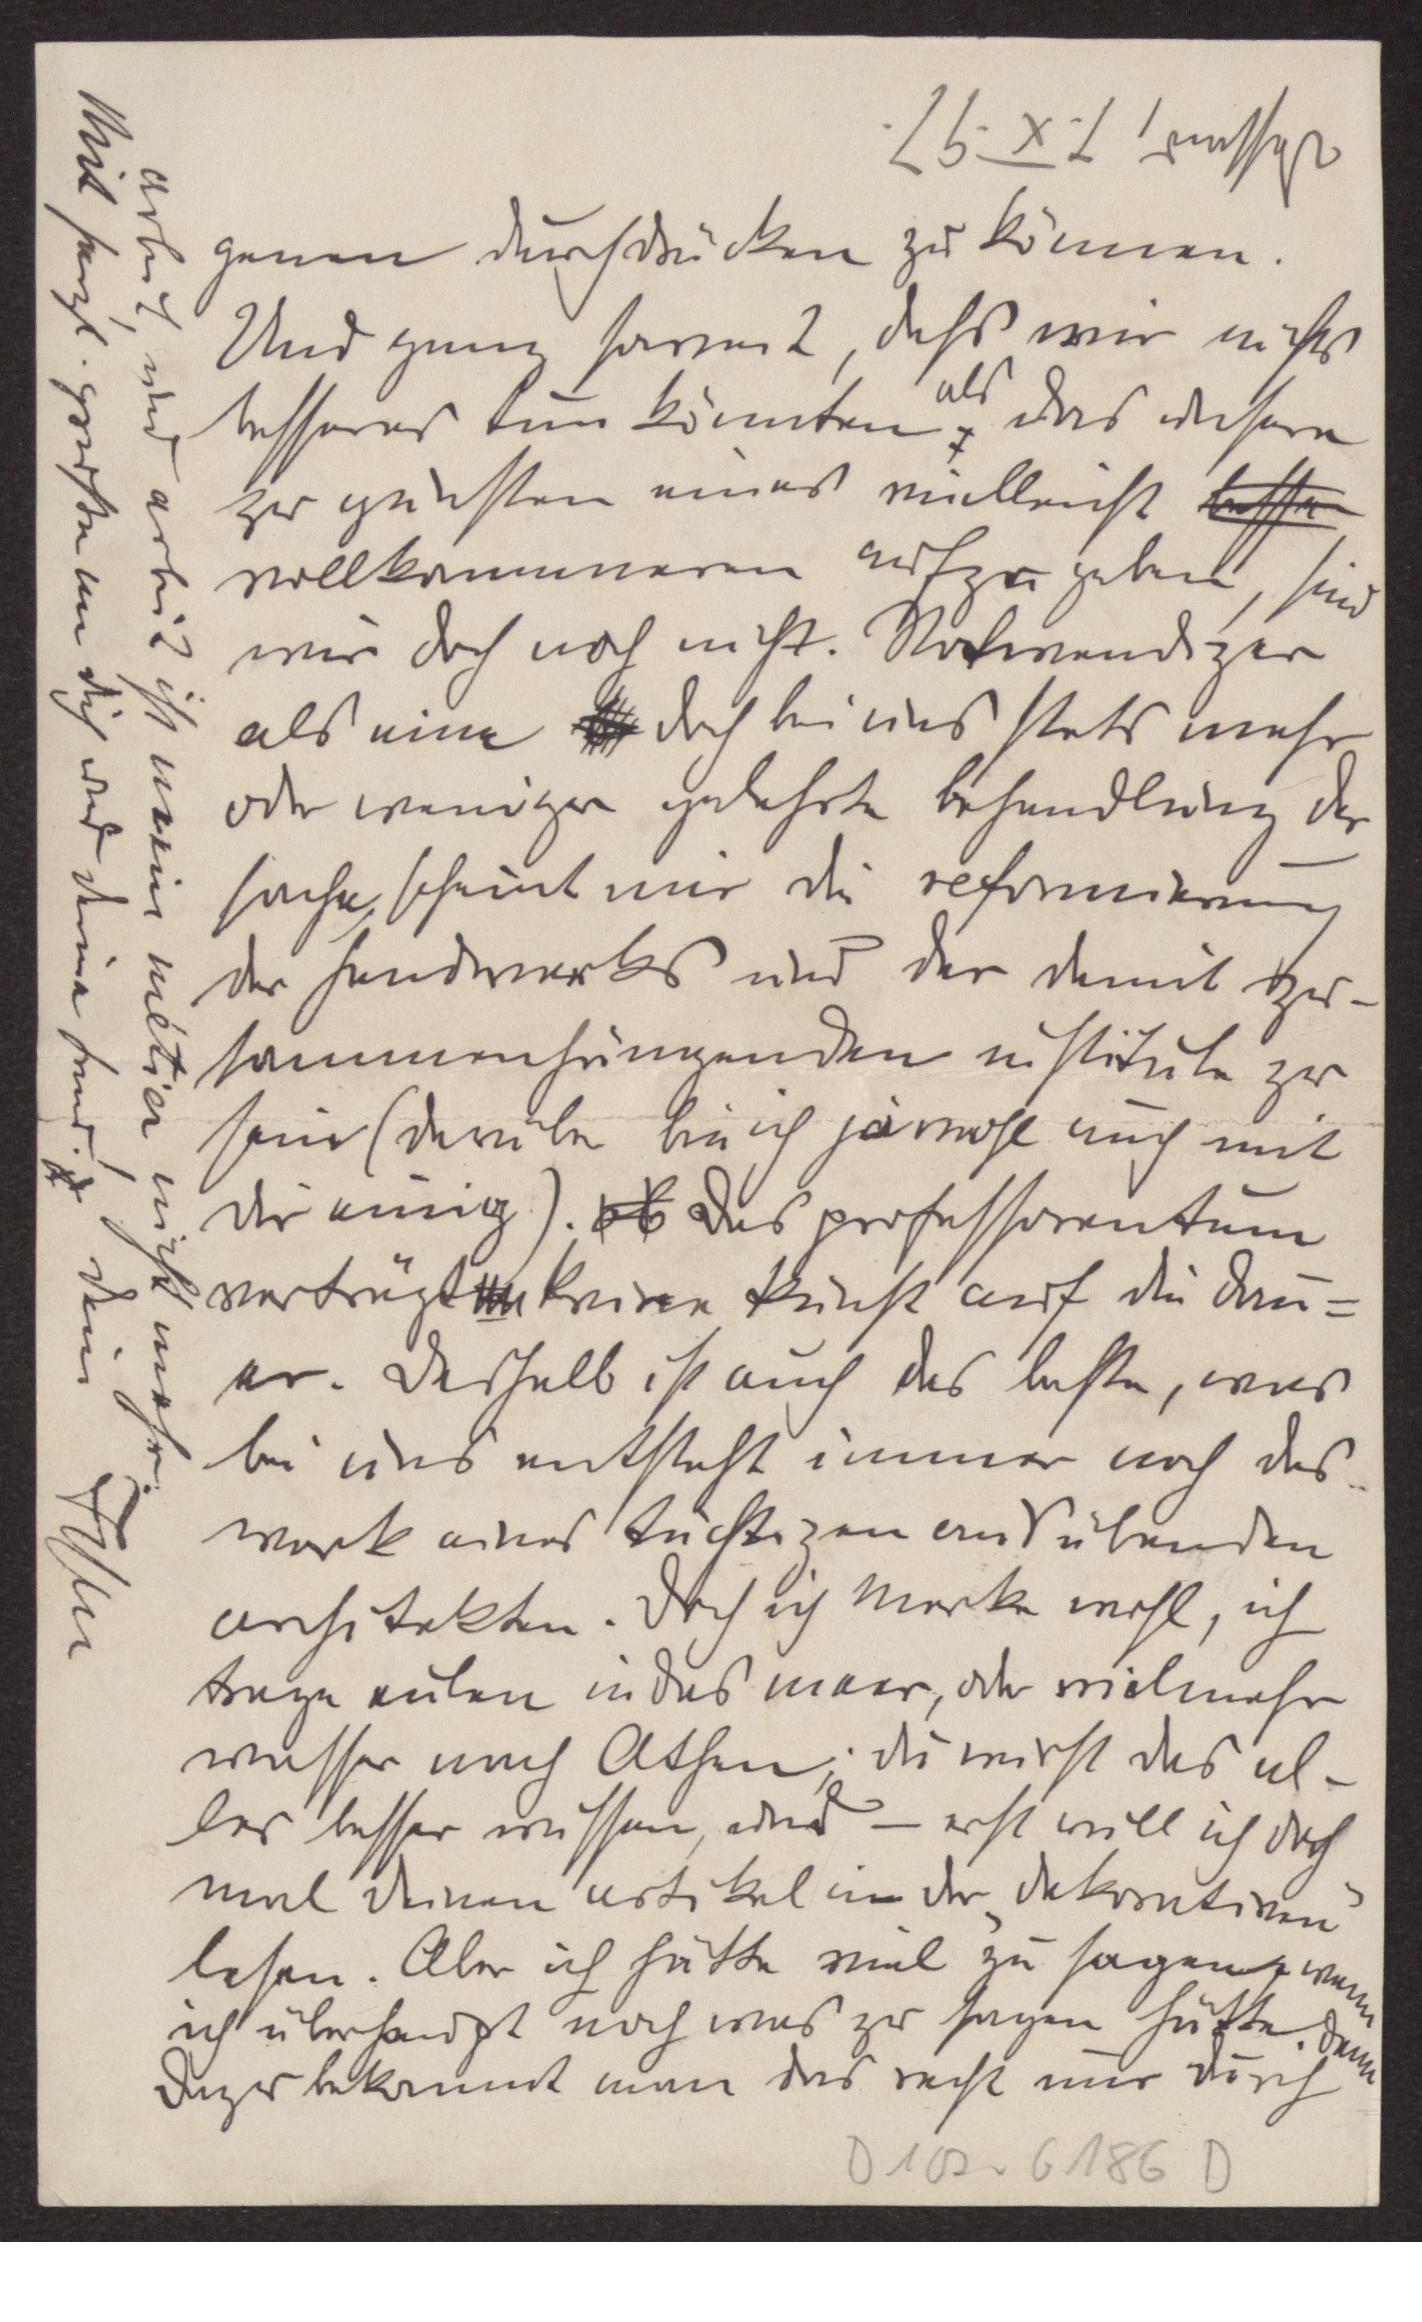 genen durchdrücken zu können.
Und ganz soweit, dass wir nichts
besseres tun könnten als das unsere
zu gunsten eines vielleicht besse
vollkommeneren aufzugeben, sind
wir doch noch nicht. Notwendiger
als eine doch bei uns stets mehr
oder weniger gelehrte behandlung der
sache, scheint mir die reformierung
des handwerks und der damit zu-
sammenhängenden institute zu
sein (darüber bin ich ja wohl auch mit
dir einig). ob Das professorentum
verträgt keine kunst auf die dau=
er. Deshalb ist auch das beste, was
bei uns entsteht immer noch das
werk eines tüchtigen ausübenden
architekten. Doch ich merke wohl, ich
trage eulen in das meer, oder vielmehr
wasser nach Athen; du wirst das al-
les besser wissen, und – erst will ich doch
mal deinen artikel in der „dekorativen"
lesen. Aber ich hätte viel zu sagen, wenn
ich überhaupt noch was zu sagen hätte. Denn
dazu bekommt man das recht nur durch
arbeit, und arbeit ist mein métier nicht mehr.
Mit herzl. grüssen an dich und deine
dein
7. X. 97.
D 102. 6186 D